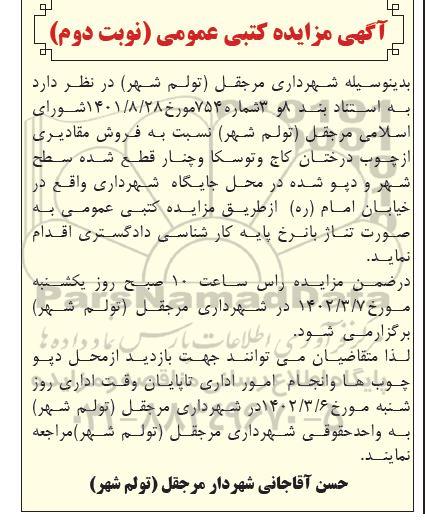 آگهی مزایده کتبی عمومی (نوبت دوم)
بدینوسیله شهرداری مرجقل (تولم شهر) در نظر دارد
به استناد بند ۸و ۳شماره۷۵۴مورخ۱۴۰۱/۸/۲۸شورای
اسلامی مرجقل (تولم شهر) نسبت به فروش مقادیری
ازچوب درختان کاج وتوسکا وچنار قطع شده سطح
شهر و دپو شده در محل جایگاه شهرداری واقع در
خیابان امام (ره) ازطریق مزایده کتبی عمومی به
صورت تناژ بانرخ پایه کار شناسی دادگستری اقدام
نماید.
درضمن مزایده راس ساعت ۱۰ صبح روز یکشنبه
مورخ۱۴۰۲/۳/۷ در شهرداری مرجقل (تولم شهر)
برگزارمی شود.
لذا متقاضیان می توانند جهت بازدید ازمحل دپو
چوب ها وانجام امور اداری تاپایان وقت اداری روز
شنبه مورخ۱۴۰۲/۳/۶در شهرداری مرجقل (تولم شهر)
به واحدحقوقی شهرداری مرجقل (تولم شهر)مراجعه
نمایند.
حسن آقاجانی شهردار مرجقل (تولم شهر)
ParsNamadData
۰۲۱-۸۸۳۴۹۶۷۰-۵